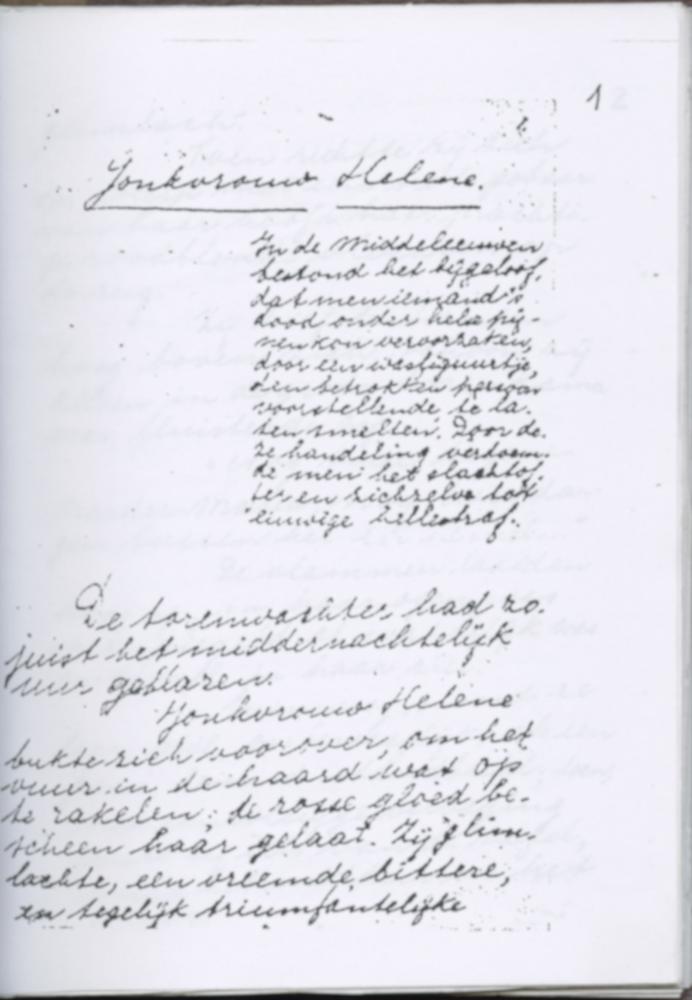 1
Jonkvrouw Helene.
In de Middeleeuwen
bestond het bijgeloof,
dat men iemand's
dood onder helse pij-
nen kon veroorzaken,
door een wasfiguurtje,
den betrokken persoon
voorstellende, te la-
ten smelten. Door de-
ze handeling verdoem-
de men het slachtof-
fer en zichzelve tot
eeuwige hellestraf.
De torenwachter had zo-
juist het middernachtelijk
uur geblazen.
Jonkvrouw Helene
bukte zich voorover, om het
vuur in de haard wat op
te rakelen; de rosse gloed be-
scheen haar gelaat. Zij glim-
lachte, een vreemde, bittere,
en tegelijk triumfantelijke